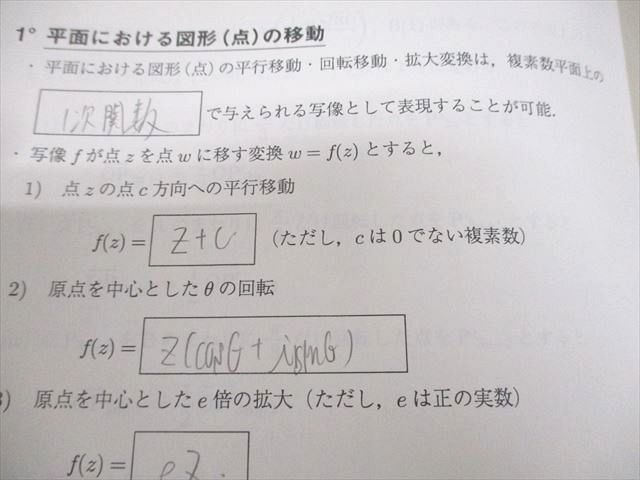 1° 平面における図形(点)の移動
・平面における図形(点)の平行移動・回転移動・拡大変換は,複素数平面上の
1次関数 で与えられる写像として表現することが可能.
・写像 f が点 z を点 w に移す変換 w = f(z) とすると,
1) 点 z の点 c 方向への平行移動
f(z) = z + c (ただし, c は 0 でない複素数)
2) 原点を中心とした θ の回転
f(z) = z(cosθ + isinθ)
3) 原点を中心とした e 倍の拡大(ただし, e は正の実数)
f(z) = ez.